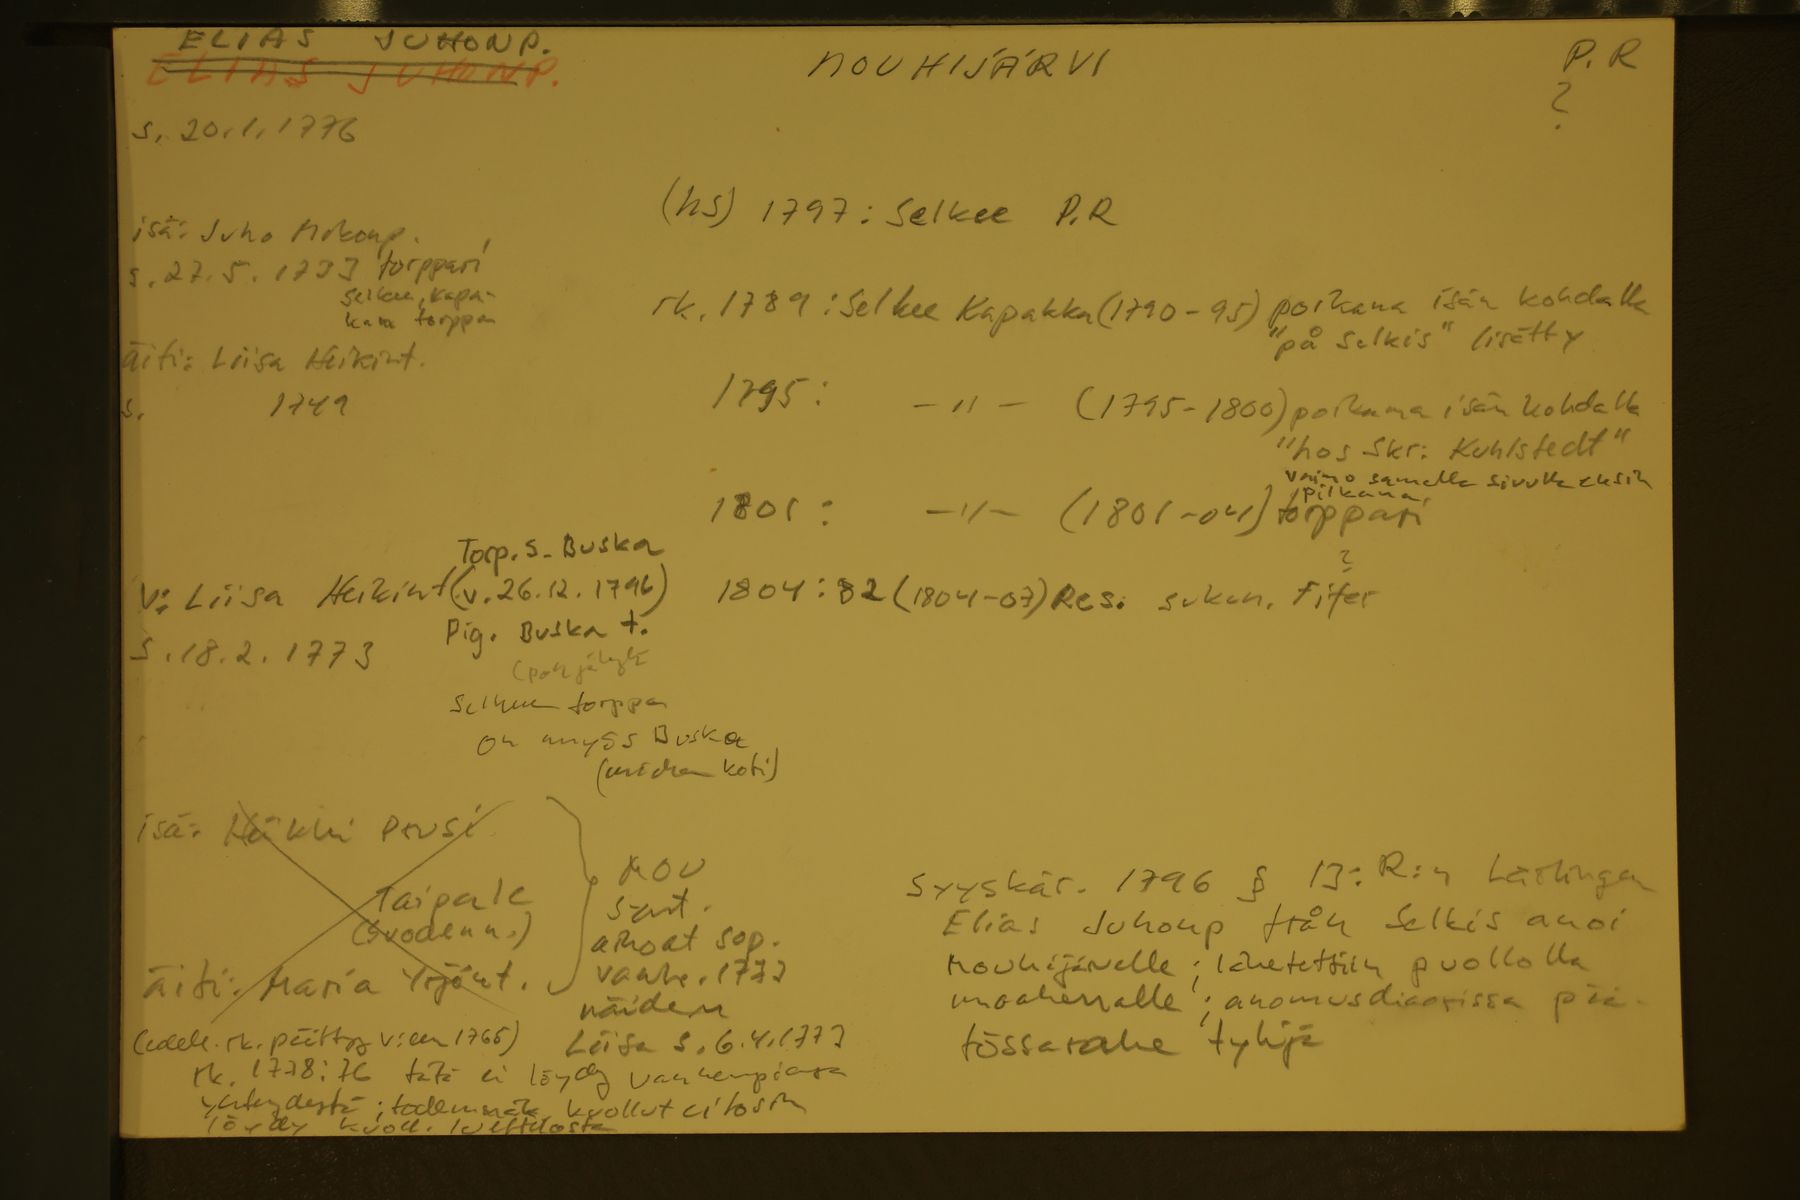 ELIAS JUHONP.
ELIAS JUHONP.
MOUHIJÄRVI
P.R
?
s. 20.1.1776
(hs) 1797: Selkee P.R
isä: Juho Mikonp.
s. 27.5.1733 torppari
Selkee, Kapa-
kan torppa
äiti: Liisa Heikint.
s. 1749
rk. 1789: Selkee Kapakka (1790-95) poikana isän kohdalla
"på Selkis" lisätty
1795: -"- (1795-1800) poikana isän kohdalla
"hos Skr: Kuhlstedt"
vaimo samalla sivulla
piikana.
1801: -"- (1801-04) torppari
?
1804: 82 (1804-07) Res. sukun. Fifer
Torp. s. Buska
V: Liisa Heikint (v. 26.12.1796)
s. 18.2.1773
Pig. Buska t.
Selkeen torppa
on myös Buska
koti)
isä: Heikki
Taipale
äiti: Maria Yrjönt.
MOU
synt.
ainoat sop.
vanhe. 1773
näiden
Liisa s. 6.4.1773
(edell. rk. päättyy v:een 1765)
rk. 1778: 76 tätä ei löydy vanhempiensa
yhteydestä; kuollut ei tosin
löydy kuoll. luettelosta
Syyskär. 1796 § 13: R:n Lärlingen
Elias Juhonp från Selkis anoi
Mouhijärvelle; lähetettiin puollolla
maaherralle; anomusdiaarissa pää-
tössarake tyhjä